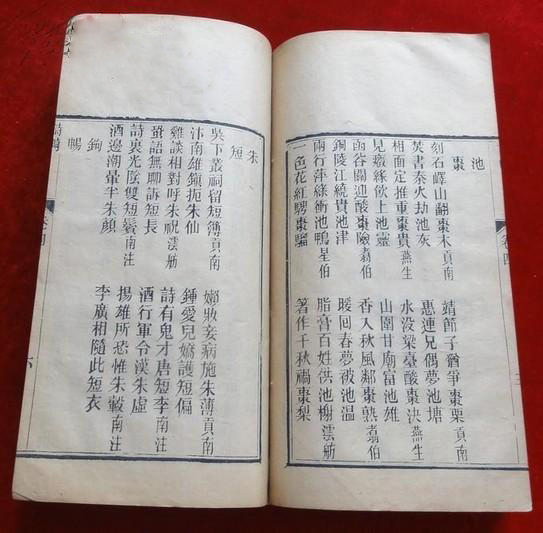 池
棗
刻石嶧山翻棗木貢南
靖節子猶爭棗栗貢南
焚書秦火劫池灰
惠連兄偶夢池塘
相面定推重棗貴燕生
水没梁臺酸棗決燕生
見癡緣傚上池靈
山圍甘廟富池雄
函谷關迎酸棗險翥伯
香入秋風鄰棗熟翥伯
銅陵江繞貴池津
暖回春夢被池溫
兩行萍綠衝池鴨星伯
脂膏百姓供池榭澐舫
一色花紅騁棗騮
著作千秋禍棗梨
朱
短
吳下叢祠留短簿貢南
嫏妝妾病施朱薄貢南
汴南雄鎮扼朱仙
鍾愛兒嬌護短偏
雞談相對呼朱祝澐舫
詩有鬼才唐短李南注
蛩語無聊訴短長
酒行軍令漢朱虛
詩裏光陰雙短鬢南注
揚雄所恐惟朱轂南注
酒邊潮暈半朱顏
李廣相隨此短衣
鉤
暢
卷四